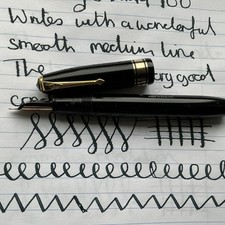 100
Writes with a wonderful
smooth medium line
The very good